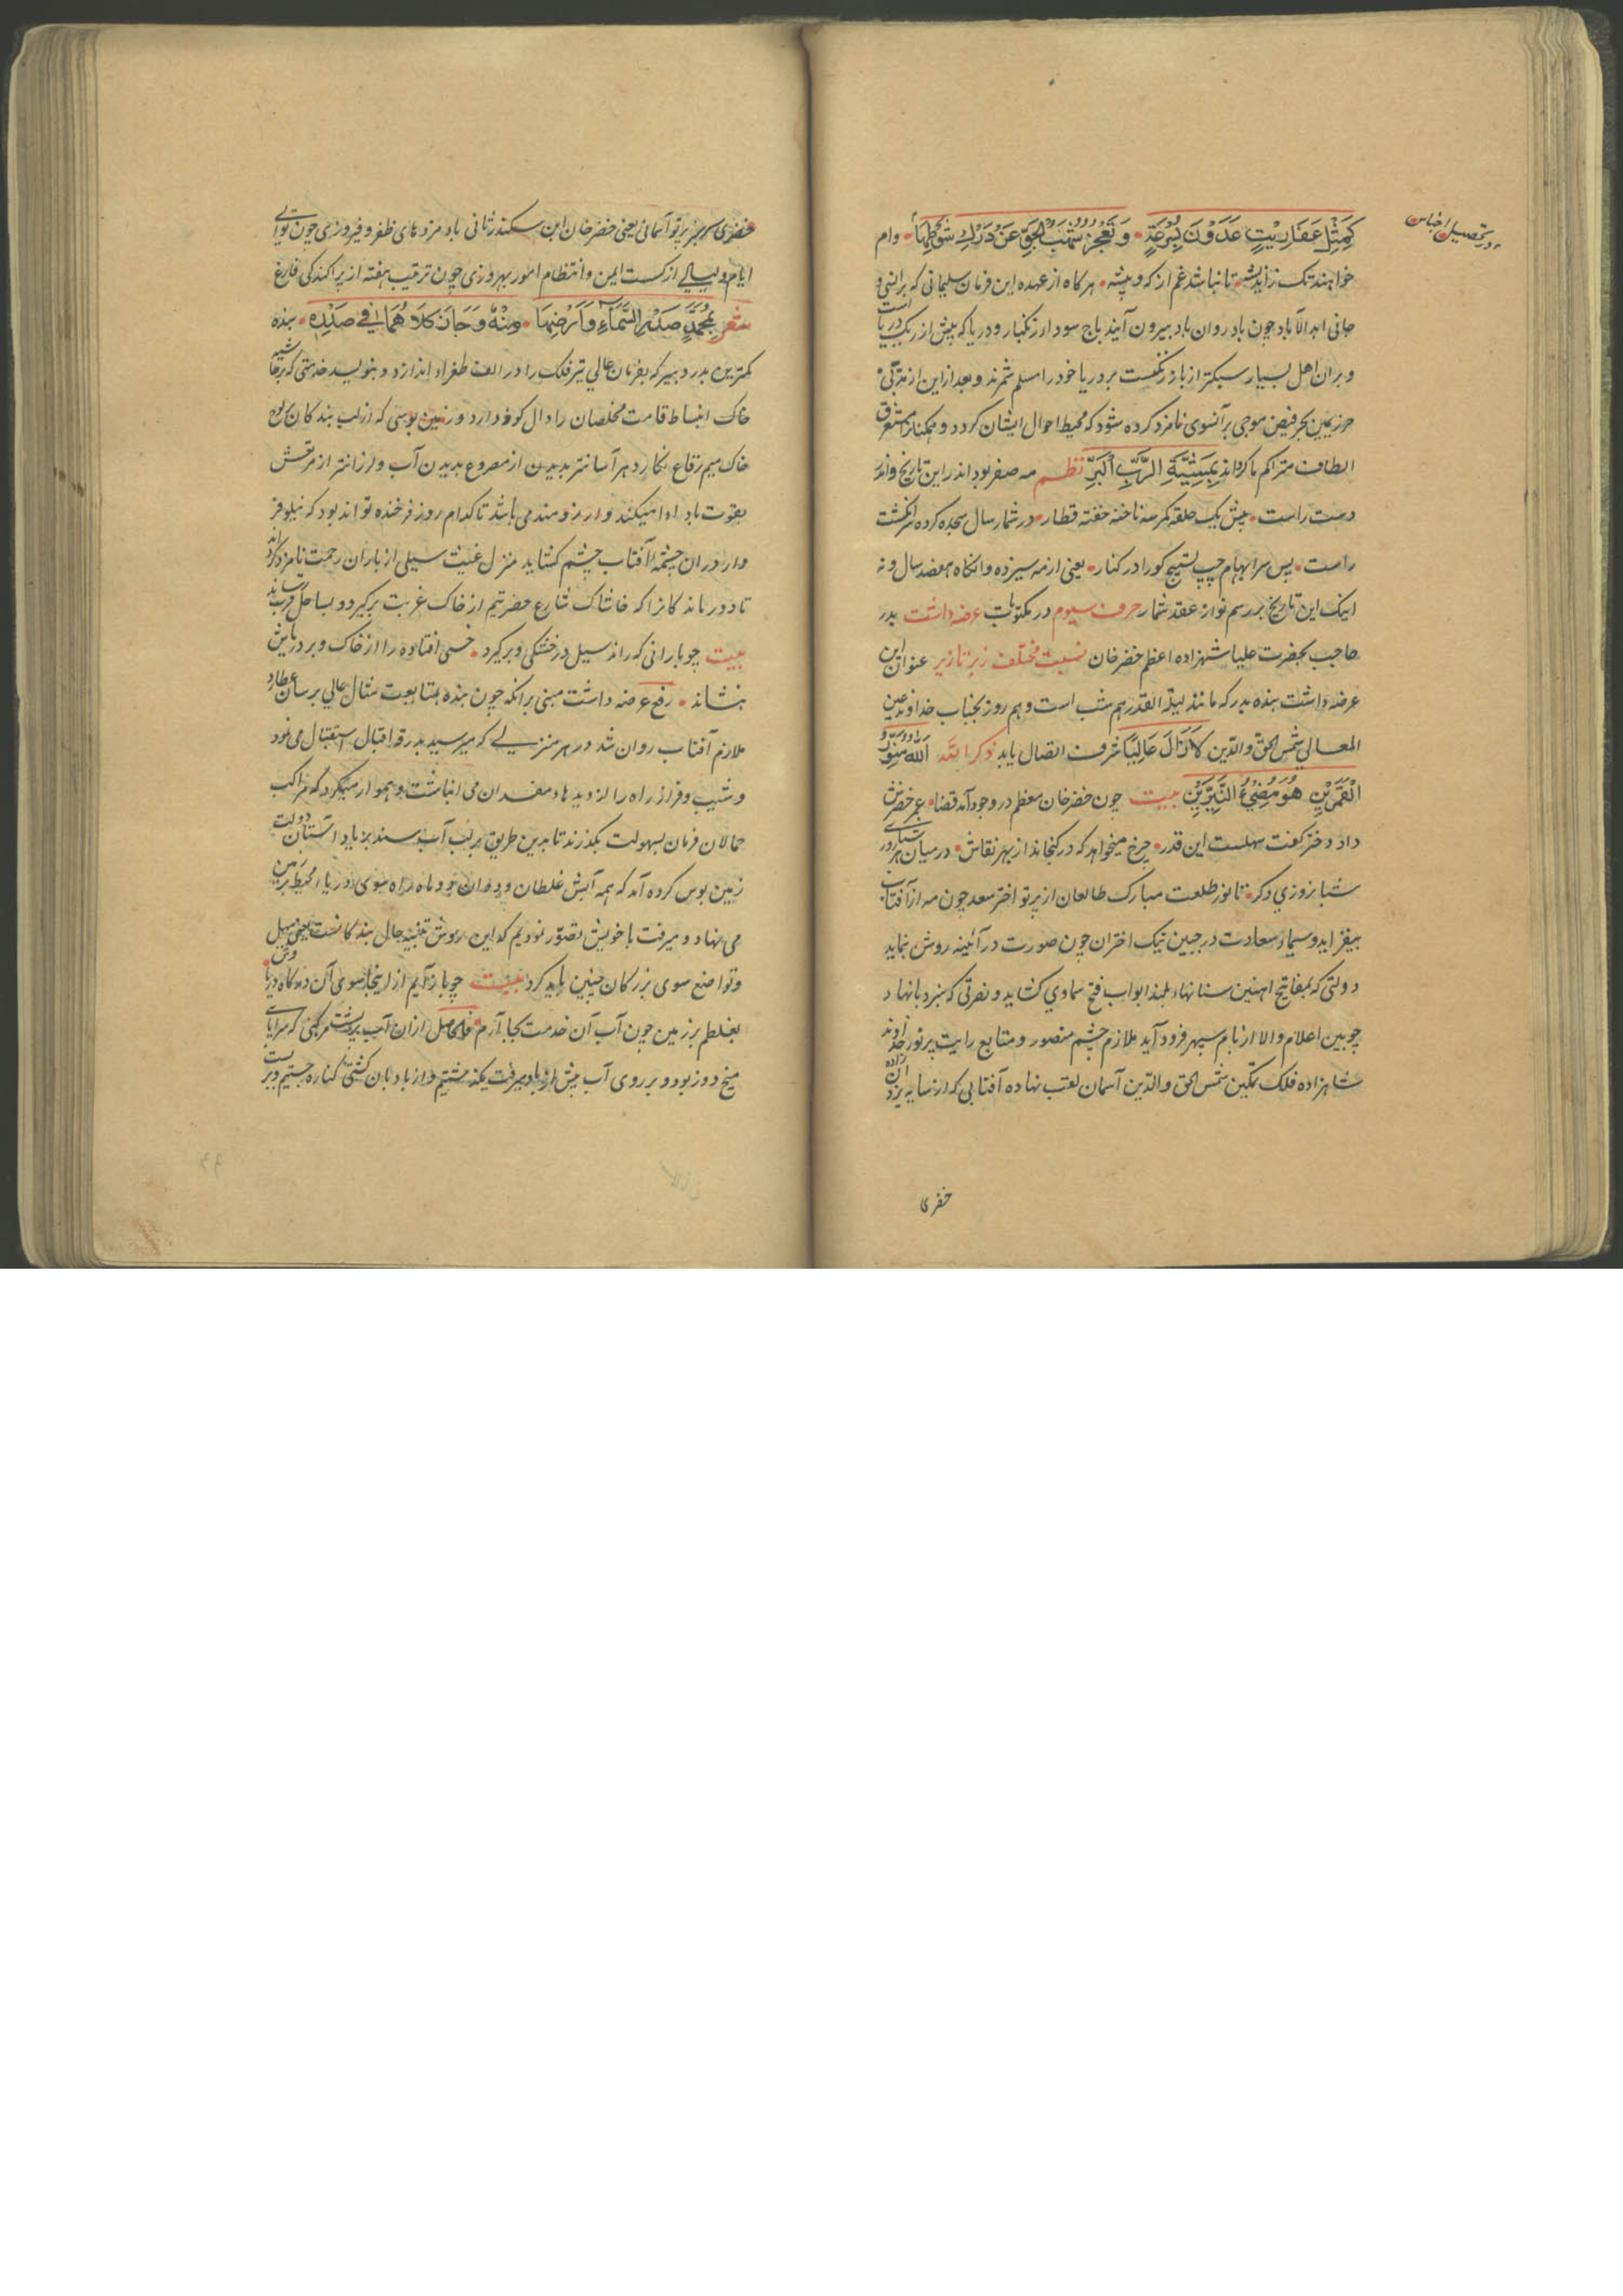 كَمِثْلِ عَفَارِيْتٍ عَدَوْنَ بِسُرْعَةٍ • وَتَعْجِزُ سُحُبُ الجَوِّ عَنْ دَرْكِ شَوْطِهَا • وام
خواهند تک زاندیشه • تا نباشد غم از کوه و پشه • هرگاه از عهده این فرمان سلیمانی که بر انسی و
جانی ابد الآباد چون باد روان باد بیرون آیند باج سود از زنگبار و دریا که بیش از ریگ دریاست
و بر آن اهل بسیار سبکتر از باز نگست بر دریا خود را مسلم شمرند و بعد از این از بندگی
حرز یمین بحر فیض موجی بر آنسوی نامزد کرده شود که محیط احوال ایشان گردد و همکنانرا مستغرق
الطاف متراکم ماکرداند بِمَشِیَّةِ الرَّبِّ اَکْبَرِ نظم مه صفر بود اندر این تاریخ واندر
دست راست • بیش یک حلقه مکر سه ناخنه خفته قطار • در شمار سال سجده کرده سر انکشت
راست • پس سر ابهام چپ تسبیح کو را در کنار • یعنی از مه سیزده وانکاه هفصد سال و نه
اینک این تاریخ بر رسم نو از عقد شمار حرف سیوم در مکتوبات عرضه داشت بدر
حاجب بحضرت علیا شهزاده اعظم خضر خان نسبت مختلف زیر تا زیر عنوان این
عرضه داشت بنده بدر که مانند لیلة القدر هم شب است و هم روز بجناب خداوند عین
المعالی شمس الحق والدین لَازَالَ عَالِیًا شرف اتصال یابد ذکر الله اَللهُ مُنَوِّرُ
الْقَمَرَیْنِ هُوَ مُضِیْءُ النَّیِّرَیْنِ بیت چون خضر خان معظم در وجود آمد قضا • عمر خضرش
داد و خضر گفت سهلست این قدر • چرخ میخواهد که در گنجاند از بهر نقاش • در میان هر دو
شبانروزی دکر • تا نور طلعت مبارک طالعان از پرتو اختر سعد چون مه از آفتاب
بیفزاید و سیماء سعادت در جبین نیک اختران چون صورت در آئینه روشن نماید
دولتی که بمفاتیح آهنین سنانهاء بلند ابواب فتح سماوی کشاید و نصرتی که بنردبانهاء
چوبین اعلام والا از بام سپهر فرود آید ملازم چشم منصور و متابع رایت پرنور خداوند
شاهزاده فلک تمکین شمس الحق والدین آسمان لعب نهاده آفتابی که از سایه یزد
خضری
خضری سرسبز پرتو آسمانی یعنی خضر خان ابن سکندر ثانی باد مزدهای ظفر و فیروزی چون توالی
ایام و لیالی از کست ایمن و انتظام امور بهروزی چون ترتیب هفته از پراکندکی فارغ
شعر بِمُحَمَّدٍ صَدْرِ السَّمَاءِ وَاَرْضِهَا • بنده
کمترین بدر دبیر که بفرمان عالی تیر فلک را در الف طغراء اندازد و بنویسد خدمتی که بر حاشیه
خاک انبساط قامت مخلصان را دال کوفه دارد و زمین بوسی که از لب بندکان بلوح
خاک میم رقاع نکارد هر آسانتر بدیدن از مصروع بدیدن آب و لرزانتر از مرتعش
بقوت باد ادا میکند و آرزومند می باشد تا کدام روز فرخنده تواند بود که نیلوفر
وار در ان چشمهٔ آفتاب چشم کشاید منزل غنیت سیلی از باران رحمت نامزد کرداند
تا درماندگانرا که خاشاک شارع حضرتیم از خاک غربت برکیرد و بساحل قربت رساند
بیت چو بارانی که راند سیل در خشکی و برکیرد • خسی افتاده را از خاک و بر دریاش
بنشاند • رفع عرضه داشت مبنی بر آنکه چون بنده بمتابعت مثال عالی برسان عطارد
ملازم آفتاب روان شد در هر منزلی که میرسید بدرقه اقبال استقبال می نمود
و شیب و فراز راه را از دیدهاء مفسدان می انباشت و هموار میکرد که مراکب
حمالان فرمان بسهولت بگذرند تا بدین طریق بر لب آب سند بزیاد آستان دولت
زمین بوس کرده آمد که همه آبش غلطان و دمان دو ماهه راه سوی دریاء محیط بر زمین
می نهاد و میرفت با خویش تصور نمودیم که این روش تنبیه حال بندکانست یعنی میل
و تواضع سوی بزرکان چنین باید کرد بیت چو باز آیم از اینجا سوی آن درگاه دریا وش •
بغلطم بر زمین چون آب آن خدمت بجا آرم • فی الحاصل از ان آب بر پشت مرکبی که سراپای
میخ دوز بود و بر روی آب پیش از باد میرفت بگذشتیم و از بادبان کشتی کناره جستیم و بر